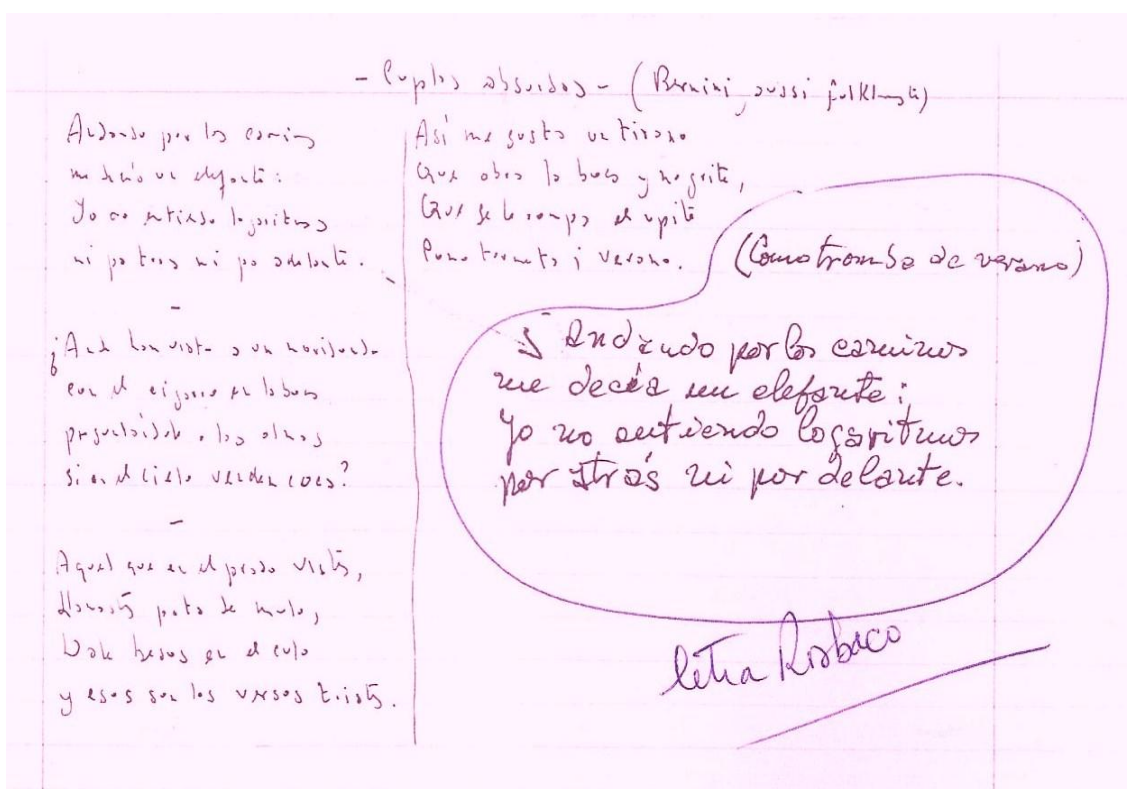 - Coplas absurdas - (Bernini, aussi folklryste)
Andando por los caminos
me decía un elefante:
Yo no entiendo logaritmos
ni po tras ni po adelante.
-
¿Aude han visto a un moribundo
con el cigarro en la boca
preguntándole a los otros
si en el cielo venden coca?
-
Aquel que en el prado vistes,
Llamado pata de mulo,
Dale besos en el culo
y esos son los versos tristes.
Así me gusta un tirano
Que abra la boca y no grite,
Que se le rompa el upite
Como trometa i verano.
(Como tromba de verano)
Andando por los caminos
me decía un elefante:
Yo no entiendo logaritmos
por atrás ni por delante.
letra Rosbaco